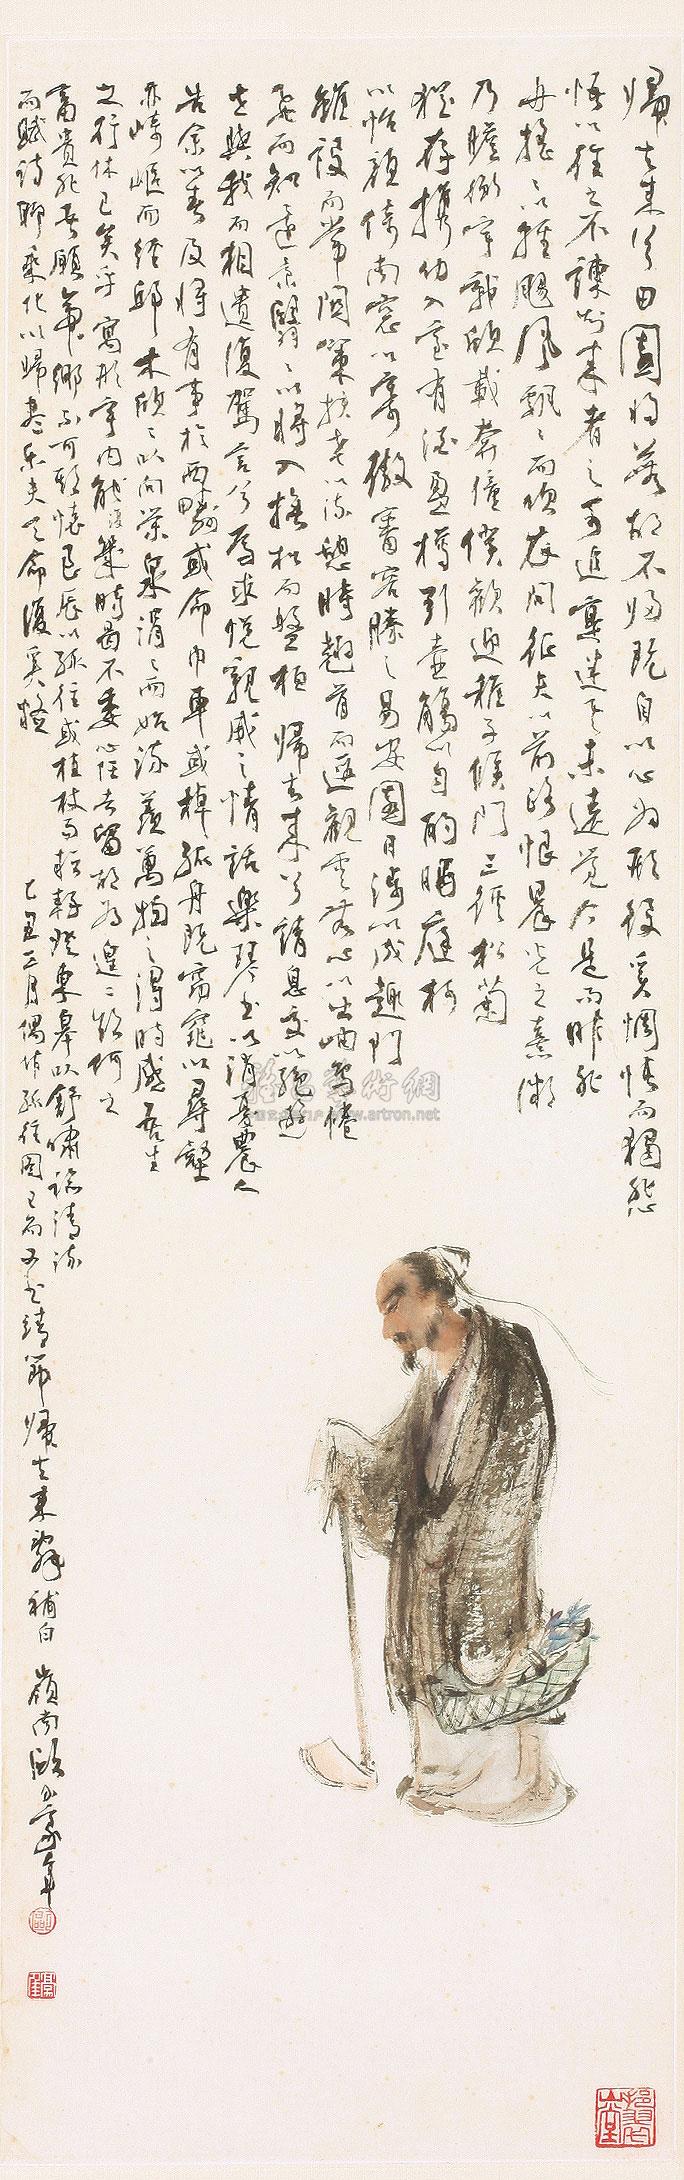 歸去來兮田園將蕪胡不歸既自以心為形役奚惆悵而獨悲
悟以往之不諫知來者之可追寔迷途其未遠覺今是而昨非
舟搖搖以輕颺風飄飄而吹衣問征夫以前路恨晨光之熹微
乃瞻衡宇載欣載奔僮僕歡迎稚子候門三徑松菊
猶存攜幼入室有酒盈樽引壺觴以自酌眄庭柯
以怡顏倚南窗以寄傲審容膝之易安園日涉以成趣門
雖設而常關策扶老以流憩時翹首而遐觀雲無心以出岫鳥倦
飛而知還景翳翳以將入撫松而盤桓歸去來兮請息交以絕遊
世與我而相遺復駕言兮焉求悅親戚之情話樂琴書以消憂農人
告余以春及將有事於西疇或命巾車或棹孤舟既窈窕以尋壑
亦崎嶇而經邱木欣欣以向榮泉涓涓而始流羨萬物之得時感吾生
之行休已矣乎寓形宇內能復幾時曷不委心任去留胡為遑遑欲何之
富貴非吾願帝鄉不可期懷良辰以孤往或植杖而耘耔登東皋以舒嘯臨清流
而賦詩聊乘化以歸盡樂夫天命復奚疑
己丑三月偶作孤往圖已而又書靖節歸去來辭補白 嶺南歐豪年
雅昌藝術網
www.artron.net